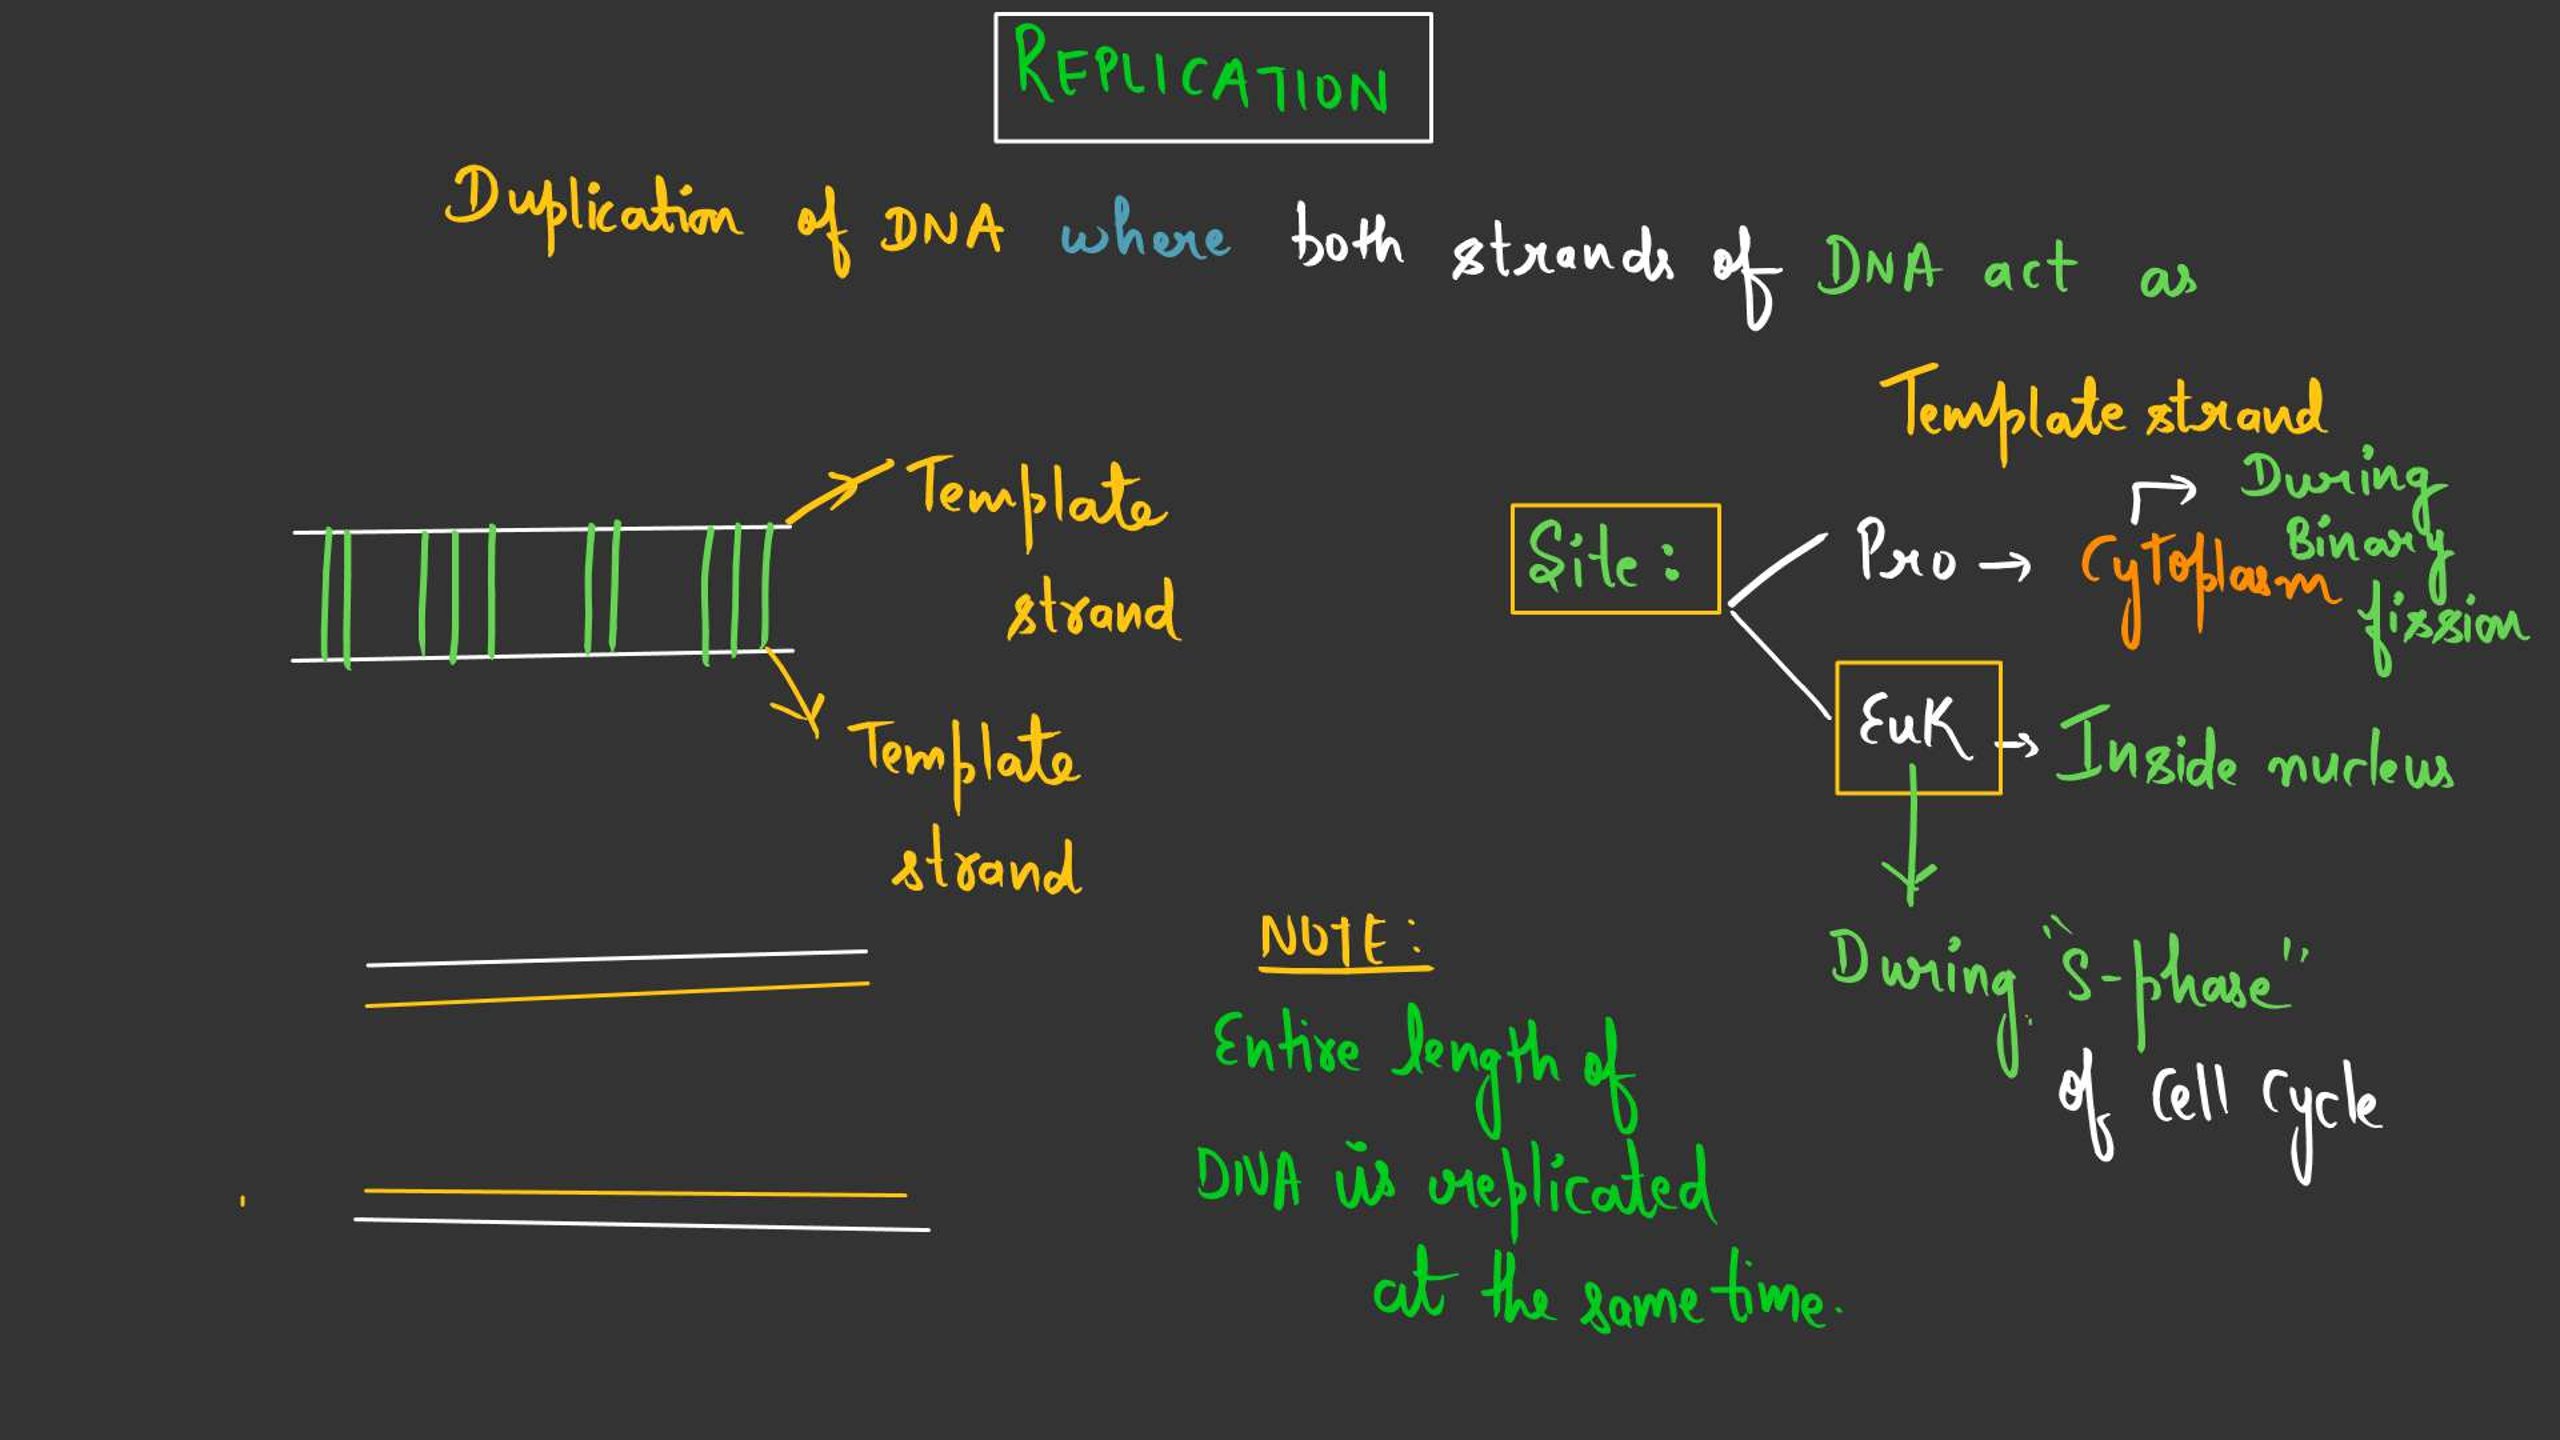 REPLICATION
Duplication of DNA where both strands of DNA act as
Template strand
Template
strand
Template
strand
Site:
Pro → Cytoplasm
During
Binary
fission
Euk → Inside nucleus
During "S-phase"
of Cell Cycle
NOTE:
Entire length of
DNA is replicated
at the same time.